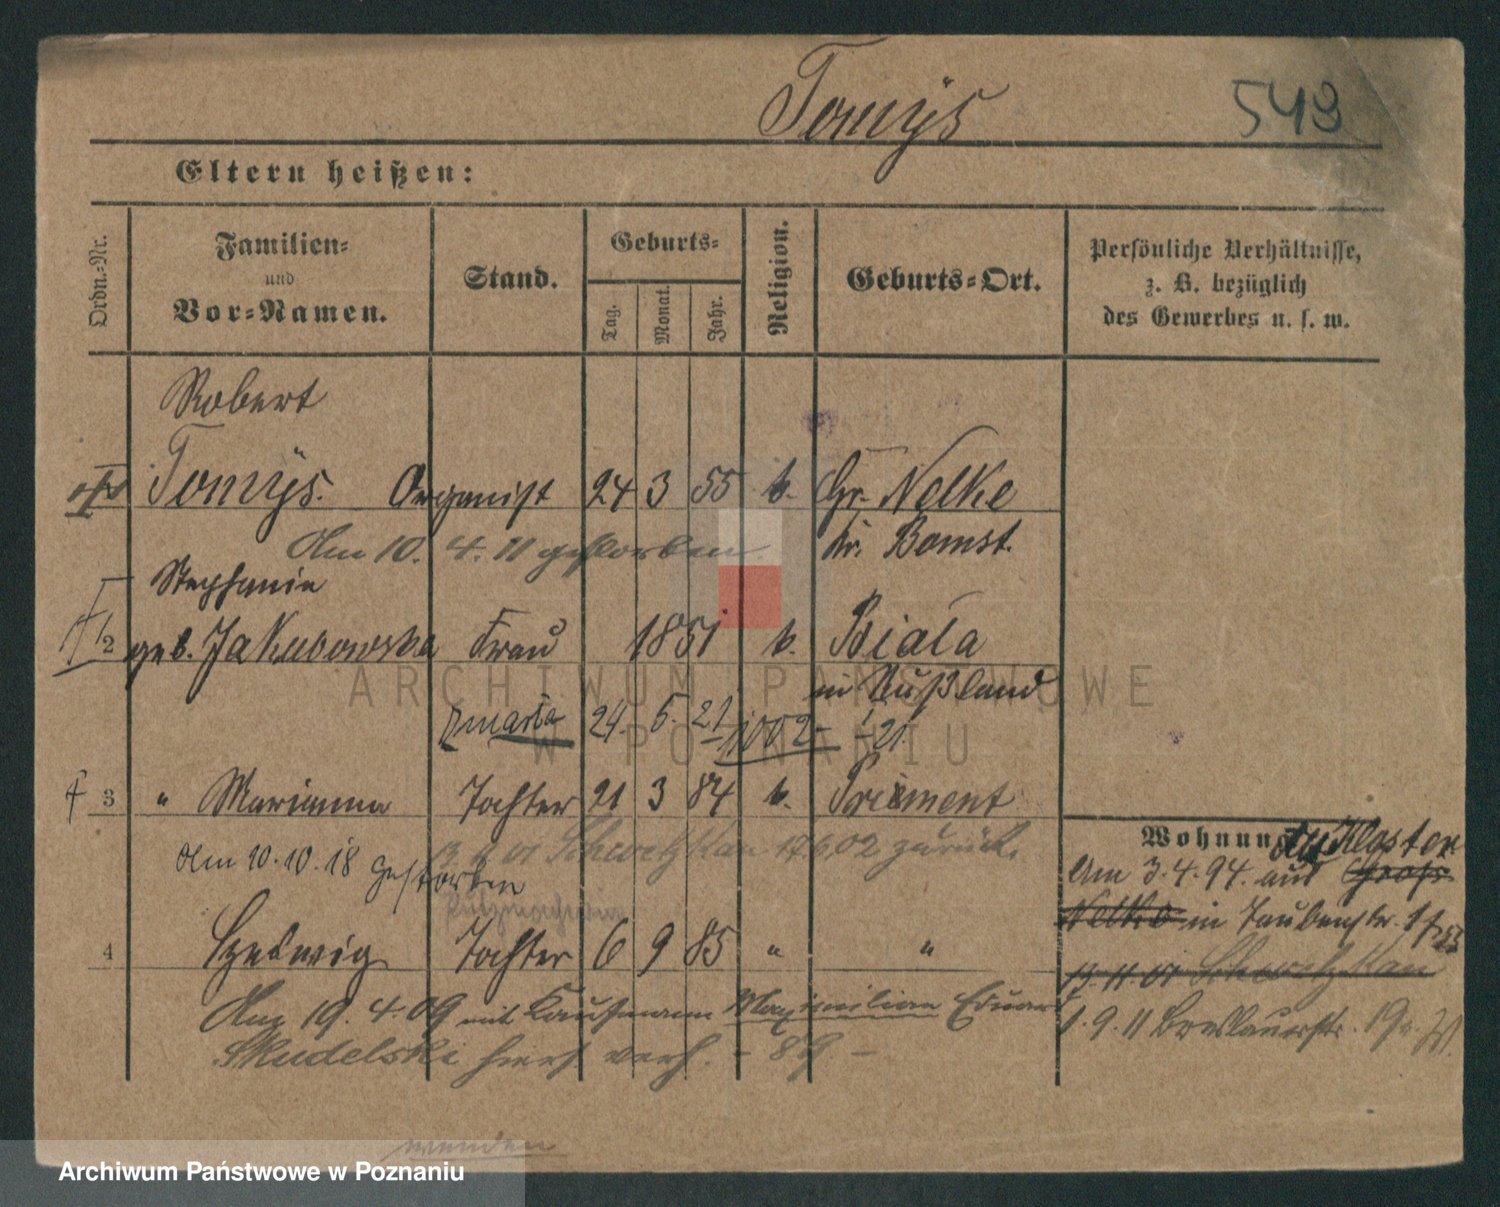 Tomÿs
543
Eltern heißen:
Ordn.-Nr.
Familien-
und
Vor-Namen.
Stand.
Geburts-
Tag.
Monat.
Jahr.
Religion.
Geburts-Ort.
Persönliche Verhältnisse,
z. B. bezüglich
des Gewerbes u. s. w.
Robert
Tomÿs. Organist 24 3 55 k. Gr. Nelke
Am 10. 4. 11 gestorben. Kr. Bomst.
Stephanie
2 geb. Jakubowska Frau 1851 k. Biała
in Rußland
maria 24. 5. 21 1002
3 " Marianna Tochter 21 3 84 k. Priment
Am 10.10.18 gestorben
17.6.02 zurück.
4 Hedwig Tochter 6 9 85 " "
Am 19. 4. 09 mit Kaufmann Maximilian Eduard
Skudelski hier verh. - 89. -
Wohnung
Kloster
Am 3.4.94. aus Groß
Nelke in Taubenstr. 1
13.11.01
1.9.11 Breslauerstr. 19.
wenden
ARCHIWUM PAŃSTWOWE
W POZNANIU
Archiwum Państwowe w Poznaniu